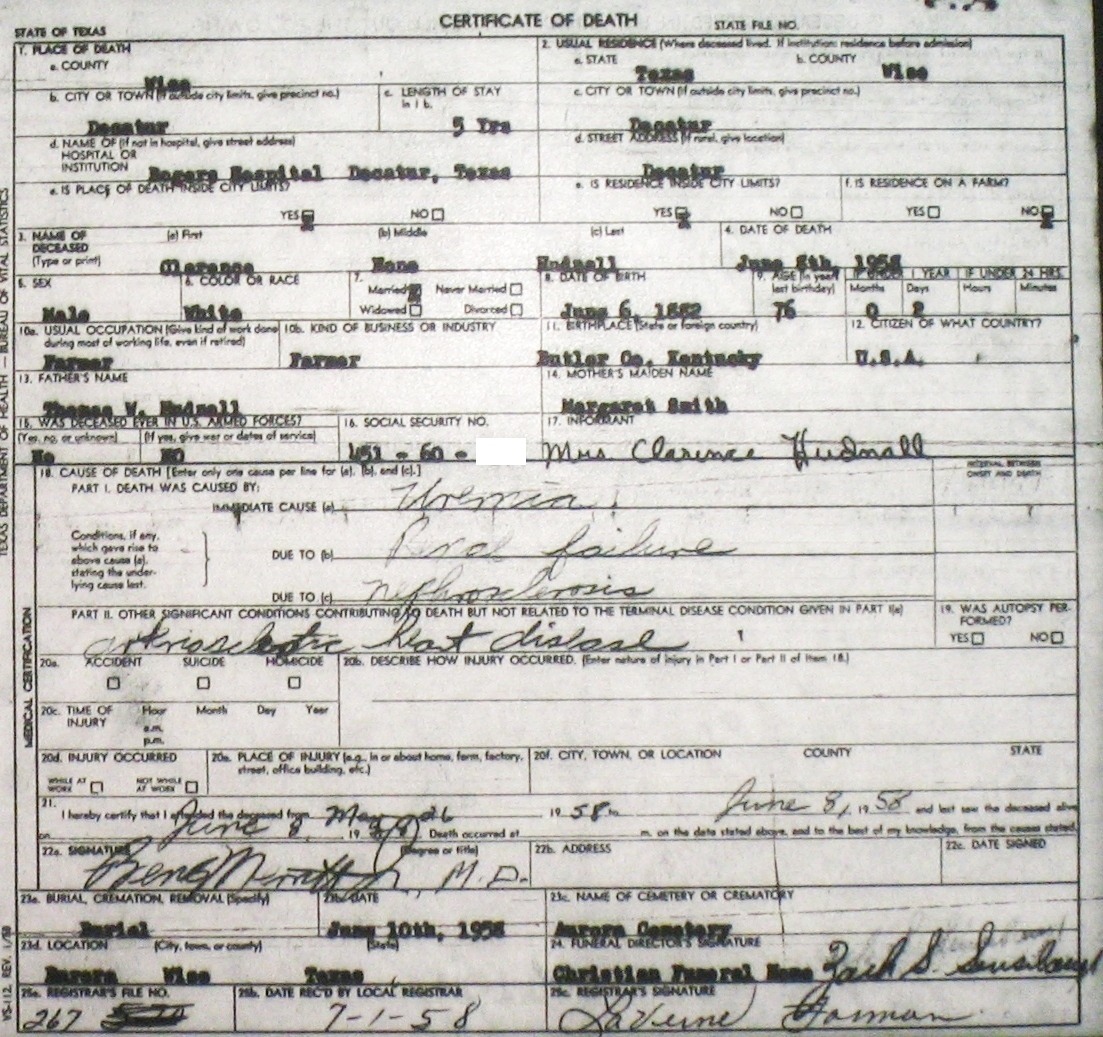 CERTIFICATE OF DEATH
STATE OF TEXAS STATE FILE NO.
1. PLACE OF DEATH
a. COUNTY
Wise
2. USUAL RESIDENCE (Where deceased lived. If institution: residence before admission)
a. STATE b. COUNTY
Texas Wise
b. CITY OR TOWN (If outside city limits, give precinct no.)
Decatur
c. LENGTH OF STAY
in 1 b.
5 Yrs
c. CITY OR TOWN (If outside city limits, give precinct no.)
Decatur
d. NAME OF (If not in hospital, give street address)
HOSPITAL OR
INSTITUTION
Rogers Hospital Decatur, Texas
d. STREET ADDRESS (If rural, give location)
Decatur
e. IS PLACE OF DEATH INSIDE CITY LIMITS?
YES NO
e. IS RESIDENCE INSIDE CITY LIMITS?
YES NO
f. IS RESIDENCE ON A FARM?
YES NO
3. NAME OF
DECEASED
(Type or print)
(a) First (b) Middle (c) Last
Clarence None Hudnall
4. DATE OF DEATH
June 8th, 1958
5. SEX
Male
6. COLOR OR RACE
White
7.
Married Never Married
Widowed Divorced
8. DATE OF BIRTH
June 6, 1882
9. AGE (In years
last birthday)
76
IF UNDER 1 YEAR IF UNDER 24 HRS.
Months Days Hours Minutes
0 2
10a. USUAL OCCUPATION (Give kind of work done
during most of working life, even if retired)
Farmer
10b. KIND OF BUSINESS OR INDUSTRY
Farmer
11. BIRTHPLACE (State or foreign country)
Butler Co. Kentucky
12. CITIZEN OF WHAT COUNTRY?
U.S.A.
13. FATHER'S NAME
Thomas W. Hudnall
14. MOTHER'S MAIDEN NAME
Margaret Smith
15. WAS DECEASED EVER IN U.S. ARMED FORCES?
(Yes, no, or unknown) (If yes, give war or dates of service)
No NO
16. SOCIAL SECURITY NO.
451 - 60 -
17. INFORMANT
Mrs Clarence Hudnall
18. CAUSE OF DEATH [Enter only one cause per line for (a), (b), and (c).]
INTERVAL BETWEEN
ONSET AND DEATH
PART I. DEATH WAS CAUSED BY:
IMMEDIATE CAUSE (a) Uremia
Conditions, if any,
which gave rise to
above cause (a),
stating the under-
lying cause last.
DUE TO (b) Renal failure
DUE TO (c) nephrosclerosis
PART II. OTHER SIGNIFICANT CONDITIONS CONTRIBUTING TO DEATH BUT NOT RELATED TO THE TERMINAL DISEASE CONDITION GIVEN IN PART I(a)
heart disease
19. WAS AUTOPSY PER-
FORMED?
YES NO
20a. ACCIDENT SUICIDE HOMICIDE
20b. DESCRIBE HOW INJURY OCCURRED. (Enter nature of injury in Part I or Part II of item 18.)
20c. TIME OF
INJURY
Hour Month Day Year
a.m.
p.m.
20d. INJURY OCCURRED
WHILE AT
WORK
NOT WHILE
AT WORK
20e. PLACE OF INJURY (e.g., in or about home, farm, factory,
street, office building, etc.)
20f. CITY, TOWN, OR LOCATION COUNTY STATE
21.
I hereby certify that I attended the deceased from May 26 19 58 to June 8, 19 58 and last saw the deceased alive
on June 8 19 58 Death occurred at m. on the date stated above, and to the best of my knowledge, from the causes stated.
22a. SIGNATURE (Degree or title)
M.D.
22b. ADDRESS
22c. DATE SIGNED
23a. BURIAL, CREMATION, REMOVAL (Specify)
Burial
23b. DATE
June 10th, 1958
23c. NAME OF CEMETERY OR CREMATORY
Aurora Cemetery
23d. LOCATION (City, town, or county) (State)
Aurora Wise Texas
24. FUNERAL DIRECTOR'S SIGNATURE
Christian Funeral Home Zach S.
25a. REGISTRAR'S FILE NO.
267
25b. DATE REC'D BY LOCAL REGISTRAR
7-1-58
25c. REGISTRAR'S SIGNATURE
LaVerne Forman
TEXAS DEPARTMENT OF HEALTH — BUREAU OF VITAL STATISTICS
MEDICAL CERTIFICATION
VS-112, REV. 1/58